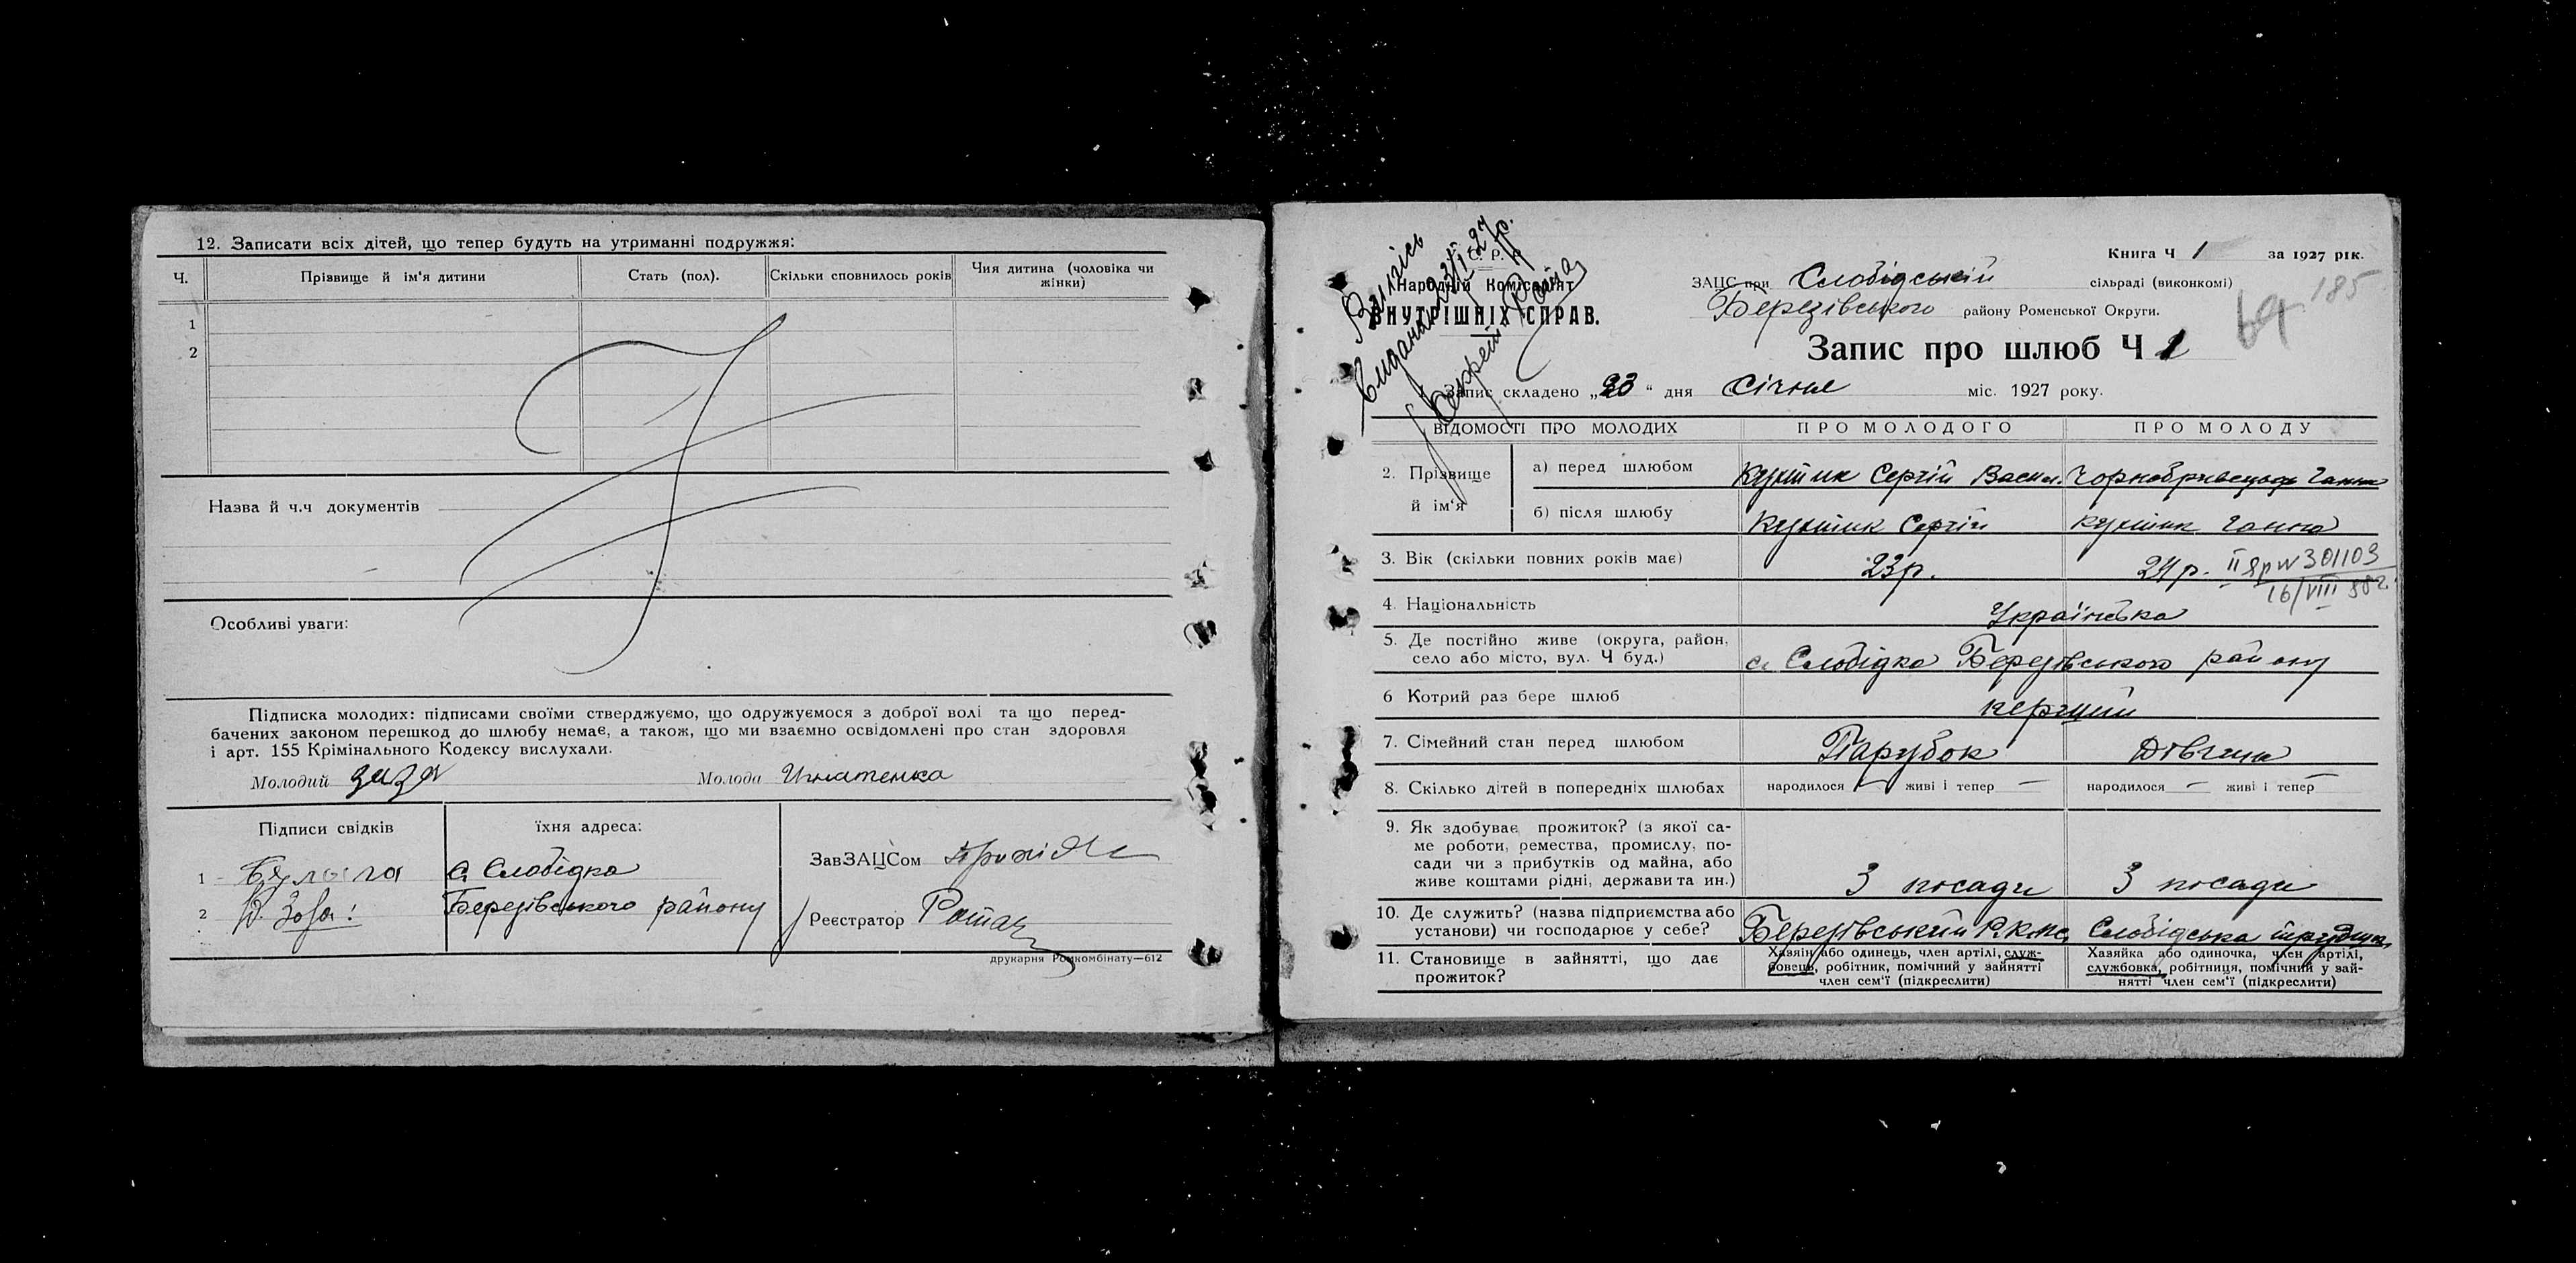 12. Записати всіх дітей, що тепер будуть на утриманні подружжя:
Ч. Прізвище й ім'я дитини Стать (пол). Скільки сповнилось років Чия дитина (чоловіка чи жінки)
1
2
Назва й ч.ч документів
Особливі уваги:
Підписка молодих: підписами своїми стверджуємо, що одружуємося з доброї волі та що перед-
бачених законом перешкод до шлюбу немає, а також, що ми взаємно освідомлені про стан здоровля
і арт. 155 Крімінального Кодексу вислухали.
Молодий Молода Игнатенка
Підписи свідків їхня адреса:
1 с. Слобідка
2 Березівського району
ЗавЗАЦСом
Реєстратор Ромаз
друкарня Ромкомбінату—612
Випись
С. Р. Р.
Народній Комісаріят
ВНУТРІШНІХ СПРАВ.
Книга Ч 1 за 1927 рік.
ЗАЦС при Слобідській сільраді (виконкомі)
185
Березівського району Роменської Округи.
Запис про шлюб Ч 1
Запис складено „23" дня Січня міс. 1927 року.
ВІДОМОСТІ ПРО МОЛОДИХ ПРО МОЛОДОГО ПРО МОЛОДУ
2. Прізвище й ім'я
а) перед шлюбом Куштик Сергій Васил. Чорнобривець Ганна
б) після шлюбу Куштик Сергій Куштик Ганна
3. Вік (скільки повних років має) 23р. 21р. II Яр № 301103
16/VIII 58г.
4 Національність Українська
5. Де постійно живе (округа, район,
село або місто, вул. Ч буд.) с. Слобідка Березівського району
6 Котрий раз бере шлюб перший
7. Сімейний стан перед шлюбом Парубок Дівчина
8. Скілько дітей в попередніх шлюбах народилося — живі і тепер — народилося — живі і тепер —
9. Як здобуває прожиток? (з якої са-
ме роботи, ремества, промислу, по-
сади чи з прибутків од майна, або
живе коштами рідні, держави та ин.) З посади З посади
10. Де служить? (назва підприємства або
установи) чи господарює у себе? Березівський Слобідська
11. Становище в зайнятті, що дає
прожиток?
Хазяїн або одинець, член артілі, служ-
бовець, робітник, помічний у зайнятті
член сем'ї (підкреслити)
Хазяйка або одиночка, член артілі,
службовка, робітниця, помічний у зай-
нятті член сем'ї (підкреслити)